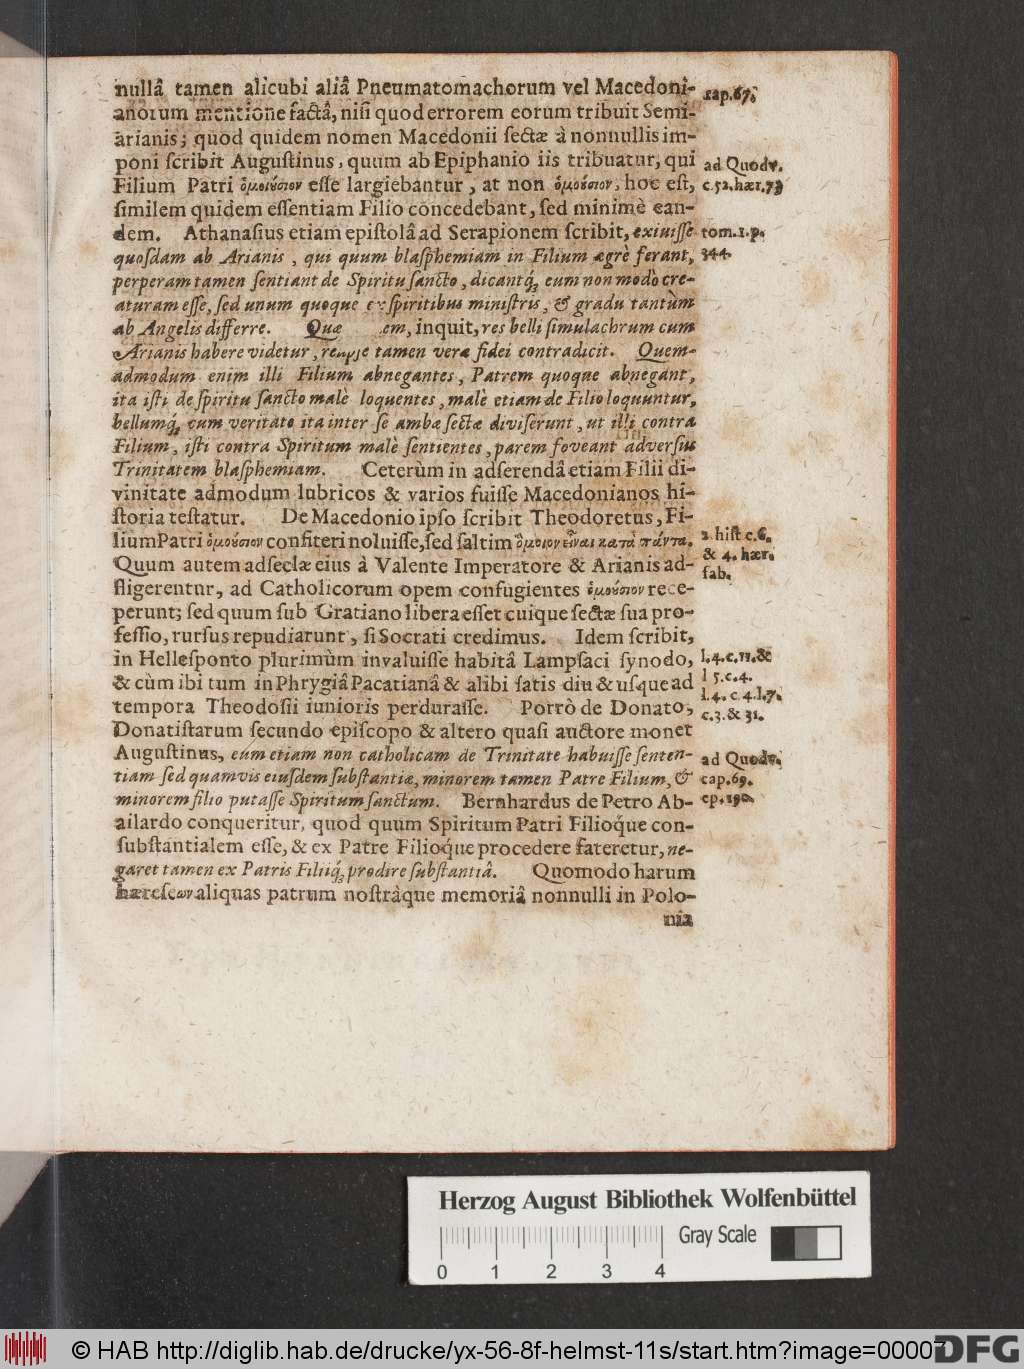 nullâ tamen alicubi aliâ Pneumatomachorum vel Macedoni-
anorum mentione factâ, niſi quod errorem eorum tribuit Semi-
arianis; quod quidem nomen Macedonii ſectæ à nonnullis im-
poni ſcribit Auguſtinus, quum ab Epiphanio iis tribuatur, qui
Filium Patri ὁμοιούσιον eſſe largiebantur, at non ὁμοούσιον, hoc eſt,
ſimilem quidem eſſentiam Filio concedebant, ſed minimè ean-
dem. Athanaſius etiam epiſtolâ ad Serapionem ſcribit, exiviſſe
quoſdam ab Arianis, qui quum blaſphemiam in Filium ægrè ferant,
perperam tamen ſentiant de Spiritu ſancto, dicantq́; eum non modò cre-
aturam eſſe, ſed unum quoque ex ſpiritibus miniſtris, & gradu tantùm
ab Angelis differre. Quæ em, inquit, res belli ſimulachrum cum
Arianis habere videtur, tamen veræ fidei contradicit. Quem-
admodum enim illi Filium abnegantes, Patrem quoque abnegant,
ita iſti de ſpiritu ſancto malè loquentes, malè etiam de Filio loquuntur,
bellumq́; cum veritate ita inter ſe ambæ ſectæ diviſerunt, ut illi contra
Filium, iſti contra Spiritum malè ſentientes, parem foveant adverſus
Trinitatem blaſphemiam. Ceterùm in adſerendâ etiam Filii di-
vinitate admodum lubricos & varios fuiſſe Macedonianos hi-
ſtoria teſtatur. De Macedonio ipſo ſcribit Theodoretus, Fi-
lium Patri ὁμοούσιον confiteri noluiſſe, ſed ſaltim ὅμοιον εἶναι κατὰ πάντα.
Quum autem adſeclæ eius à Valente Imperatore & Arianis ad-
fligerentur, ad Catholicorum opem confugientes ὁμοούσιον rece-
perunt; ſed quum ſub Gratiano libera eſſet cuique ſectæ ſua pro-
feſſio, rurſus repudiarunt, ſi Socrati credimus. Idem ſcribit,
in Helleſponto plurimùm invaluiſſe habitâ Lampſaci ſynodo,
& cùm ibi tum in Phrygiâ Pacatianâ & alibi ſatis diu & uſque ad
tempora Theodoſii iunioris perduraſſe. Porrò de Donato,
Donatiſtarum ſecundo epiſcopo & altero quaſi auctore monet
Auguſtinus, eum etiam non catholicam de Trinitate habuiſſe ſenten-
tiam ſed quamvis eiuſdem ſubſtantiæ, minorem tamen Patre Filium, &
minorem filio putaſſe Spiritum ſanctum. Bernhardus de Petro Ab-
ailardo conqueritur, quod quum Spiritum Patri Filioq́ue con-
ſubſtantialem eſſe, & ex Patre Filioq́ue procedere fateretur, ne-
garet tamen ex Patris Filiiq́; prodire ſubſtantiâ. Quomodo harum
hæreſεων aliquas patrum noſtràque memoriâ nonnulli in Polo-
nia
cap. 67.
ad Quodv.
c. 52. hær. 73
tom. 1. p.
344.
2 hiſt c. 6.
& 4. hær.
fab.
l. 4. c. 11. &
l 5. c. 4.
l. 4. c 4. l. 7.
c. 3. & 31.
ad Quodv.
cap. 69.
ep. 190.
Herzog August Bibliothek Wolfenbüttel
Gray Scale
0 1 2 3 4
© HAB http://diglib.hab.de/drucke/yx-56-8f-helmst-11s/start.htm?image=00007
DFG